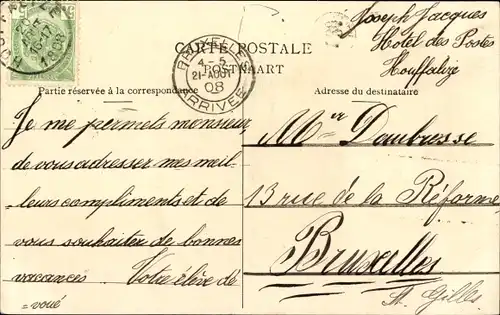 HOUFFALIZE
20 AOUT
16-17
1908
BRUXELLES
4-5
21-AOUT
08
ARRIVEE
CARTE POSTALE
POSTKAART
Joseph Jacques
Hôtel des Postes
Houffalize
Partie réservée à la correspondance
Adresse du destinataire
Je me permets monsieur
de vous adresser mes meil-
leurs compliments et de
vous souhaiter de bonnes
vacances. Votre élève dé-
-voué
Mr Daubresse
13 rue de la Réforme
Bruxelles
St. Gilles